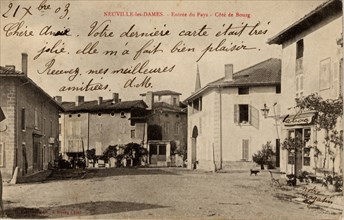 NEUVILLE-les-DAMES. - Entrée du Pays - Côté de Bourg
21 Xbre 03
Chère Amie. Votre dernière carte était très
jolie, elle m'a fait bien plaisir.
Recevez, mes meilleures
amitiés. A.M.